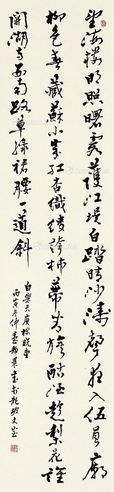 望海樓明照曙霞護江堤白踏晴沙濤聲夜入伍員廟
柳色春藏蘇小家紅袖織綾誇柿蒂青旗沽酒趁梨花誰
開湖寺西南路草綠裙腰一道斜
白樂天